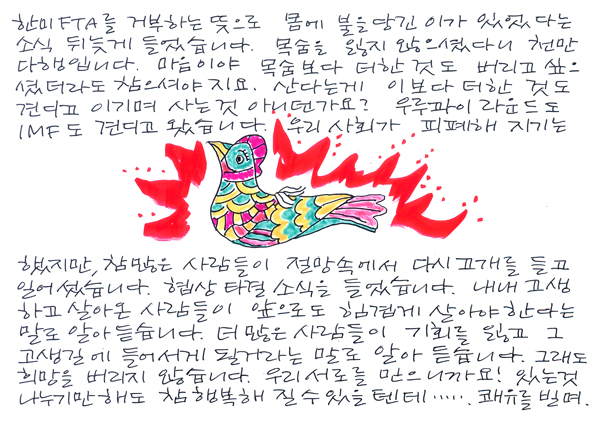 한미 FTA를 거부하는 뜻으로 몸에 불을 당긴 이가 있었다는
소식 뒤늦게 들었습니다. 목숨을 잃지 않으셨다니 천만
다행입니다. 마음이야 목숨보다 더한 것도 버리고 싶으
셨더라도 참으셔야 지요. 산다는게 이보다 더한 것도
견디고 이기며 사는것 아니던가요? 우루과이 라운드도
IMF도 견디고 왔습니다. 우리 사회가 피폐해 지기는
했지만, 참 많은 사람들이 절망속에서 다시 고개를 들고
일어섰습니다. 협상 타결 소식을 들었습니다. 내내 고생
하고 살아온 사람들이 앞으로도 힘겹게 살아야 한다는
말로 알아 듣습니다. 더 많은 사람들이 기회를 잃고 그
고생길에 들어서게 될거라는 말로 알아 듣습니다. 그래도
희망을 버리지 않습니다. 우리 서로를 믿으니까요! 있는것
나누기만 해도 참 행복해 질 수 있을 텐데‥‥‥. 쾌유를 빌며.